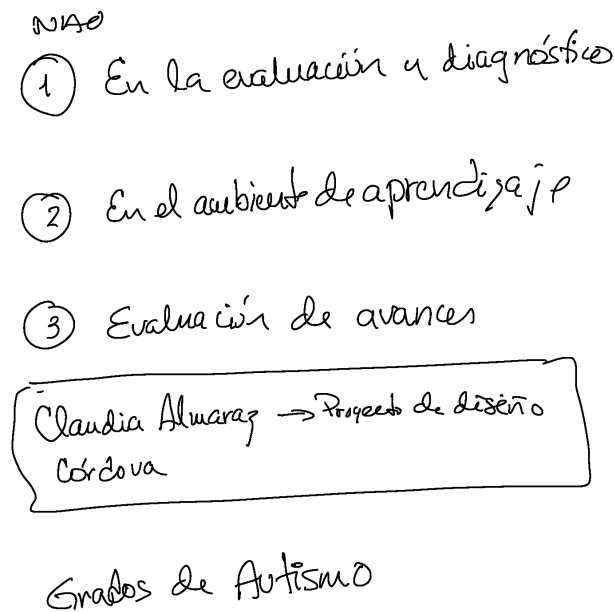 NAO
1 En la evaluación y diagnóstico
2 En el ambiente de aprendizaje
3 Evaluación de avances
Claudia Almaraz → Proyecto de diseño
Córdova
Grados de Autismo